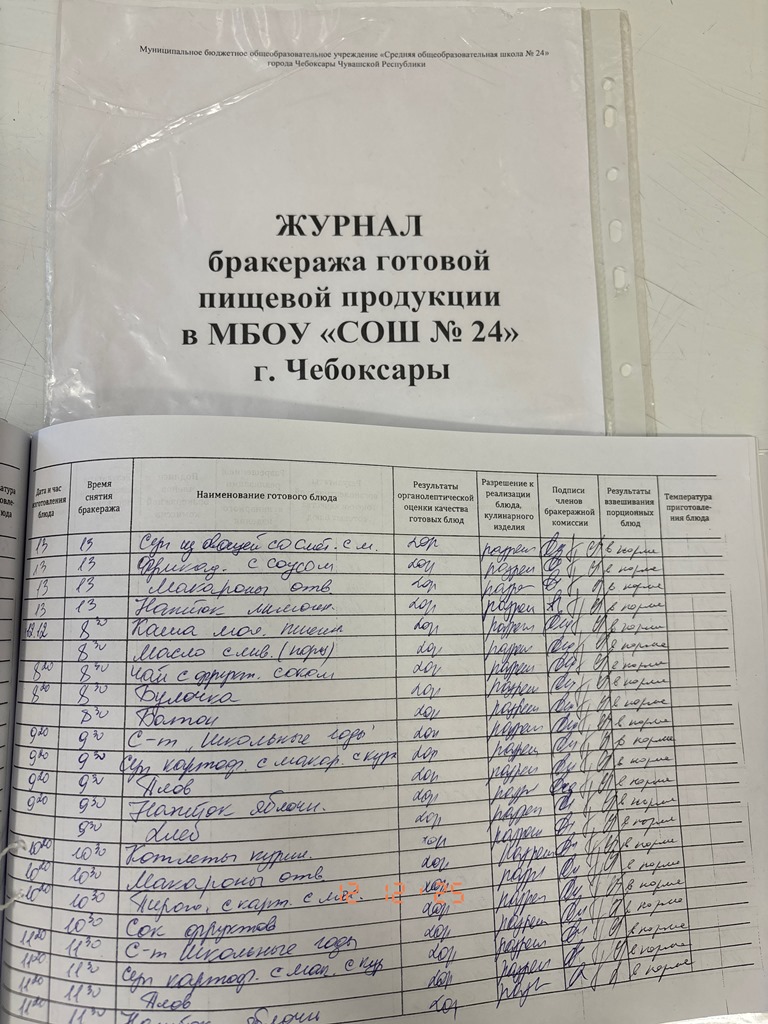 Муниципальное бюджетное общеобразовательное учреждение «Средняя общеобразовательная школа № 24»
города Чебоксары Чувашской Республики
ЖУРНАЛ
бракеража готовой
пищевой продукции
в МБОУ «СОШ № 24»
г. Чебоксары
Дата и час изготовления блюда Время снятия бракеража Наименование готового блюда Результаты органолептической оценки качества готовых блюд Разрешение к реализации блюда, кулинарного изделия Подписи членов бракеражной комиссии Результаты взвешивания порционных блюд Температура приготовле-ния блюда
13 13 Суп из овощей со смет. с м. хор разреш в норме
13 13 с соусом хор разреш в норме
13 13 Макароны отв хор разреш в норме
13 13 Напиток лимонн. хор разреш в норме
12.12 8 30 Каша мол. пшенн хор разреш в норме
8 30 Масло слив. (порц) хор разреш в норме
8 20 8 30 Чай с фрукт. соком хор разреш в норме
8 20 8 30 Булочка хор разреш в норме
8 30 Батон хор разреш в норме
9 20 9 30 С-т „Школьные годы" хор разреш в норме
9 20 9 30 Суп картоф. с макар. с кур хор разреш в норме
9 20 9 30 Плов хор разреш в норме
9 20 9 30 Напиток яблочн. хор разреш в норме
9 30 Хлеб хор разреш в норме
10 20 10 30 Котлеты курин. хор разреш в норме
10 20 10 30 Макароны отв хор разреш в норме
10 20 10 30 Пирог с карт. с хор разреш в норме
10 30 Сок фруктов хор разреш в норме
11 20 11 30 С-т Школьные годы хор разреш в норме
11 20 11 30 Суп картоф. с мак. с кур хор разреш в норме
11 20 11 30 Плов хор разр в норме
11 20 11 30 Напиток яблочн
12 12 25